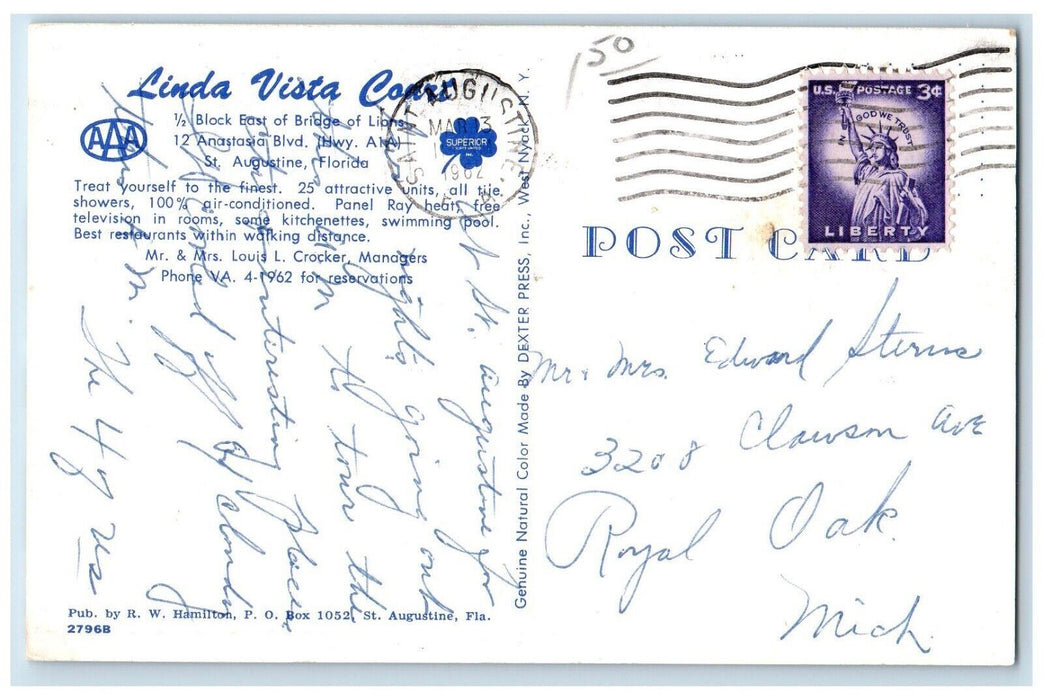 Linda Vista Court
½ Block East of Bridge of Lions
12 Anastasia Blvd. (Hwy. A1A)
St. Augustine, Florida
AAA
SUPERIOR
Treat yourself to the finest. 25 attractive units, all tile
showers, 100% air-conditioned. Panel Ray heat, free
television in rooms, some kitchenettes, swimming pool.
Best restaurants within walking distance.
Mr. & Mrs. Louis L. Crocker, Managers
Phone VA. 4-1962 for reservations
At St. Augustine for
nights going out
to tour the
interesting places
cloudy
The 4 of us
Pub. by R. W. Hamilton, P. O. Box 1052, St. Augustine, Fla.
2796B
Genuine Natural Color Made By DEXTER PRESS, Inc., West Nyack, N. Y.
SAINT AUGUSTINE,
MAR 3
1962
150
U.S. POSTAGE 3¢
IN GOD WE TRUST
LIBERTY
POST CARD
Mr. Mrs. Edward Sterns
3208 Clawson Ave
Royal Oak
Mich.